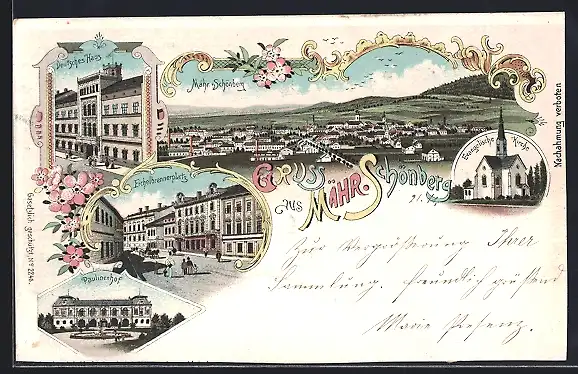 Deutsches Haus
Mähr. Schönberg
Evangelische Kirche
Nachahmung verboten
Eichelbrennerplatz
Gruss
aus
Mähr. Schönberg
21.
Paulinenhof
Gesetzlich geschützt, No 2246.
Zur Vergrößerung Ihrer
Sammlung. freundlich grüßend
Marie